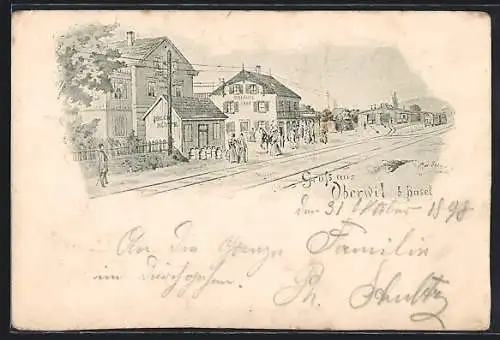 Gruß aus
Oberwil b. Basel
den 31 Oktober 1898
An die ganze Familie
im Durchgehen.
Ph. Schultz